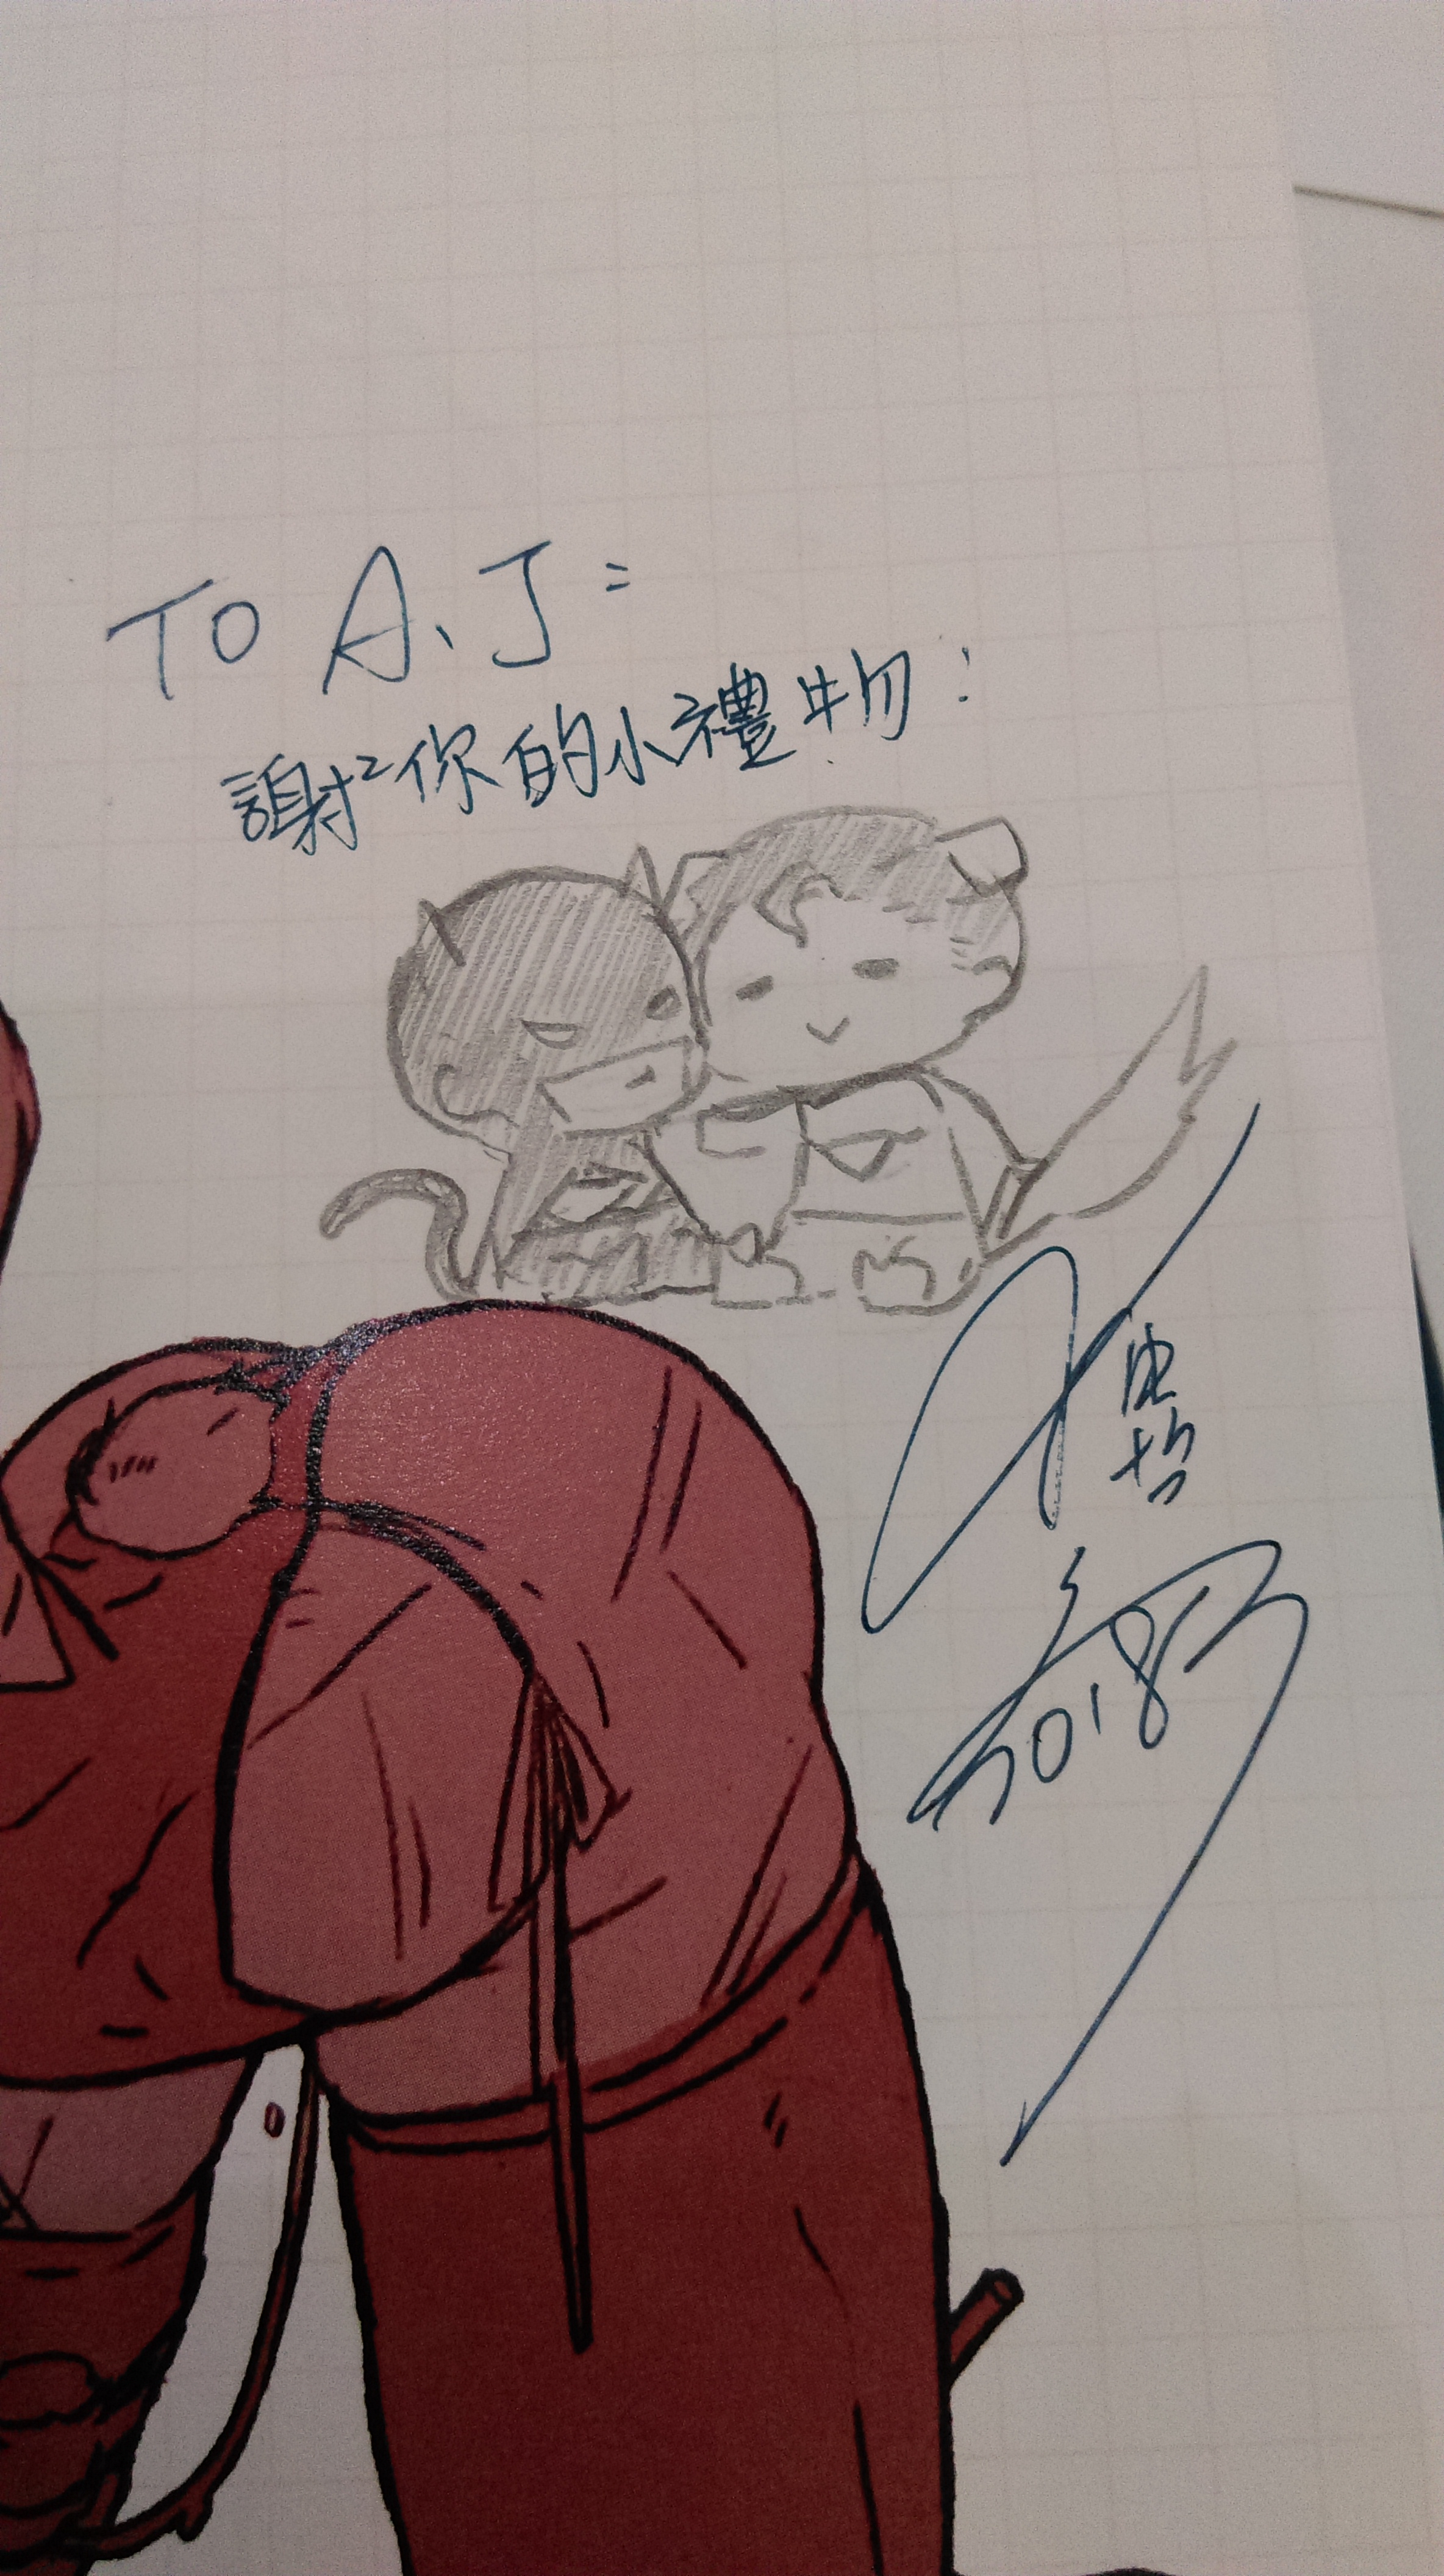 TO A.J:
謝謝你的小禮物!
2018